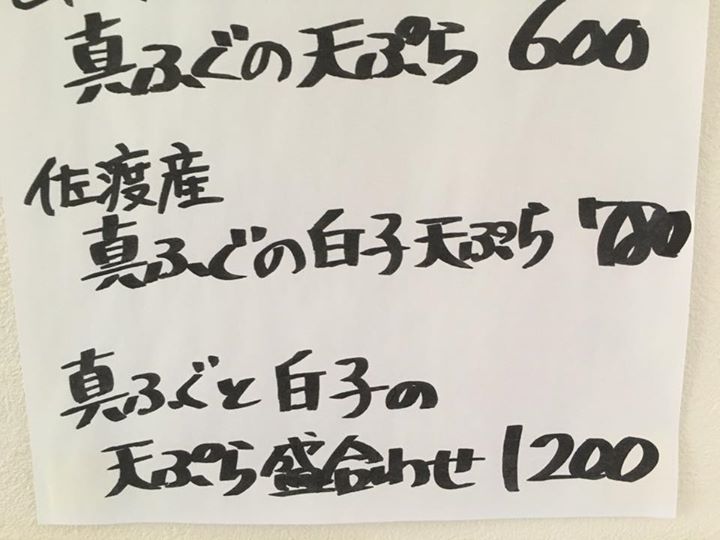 真ふぐの天ぷら 600
佐渡産
真ふぐの白子天ぷら 780
真ふぐと白子の
天ぷら盛合わせ 1200